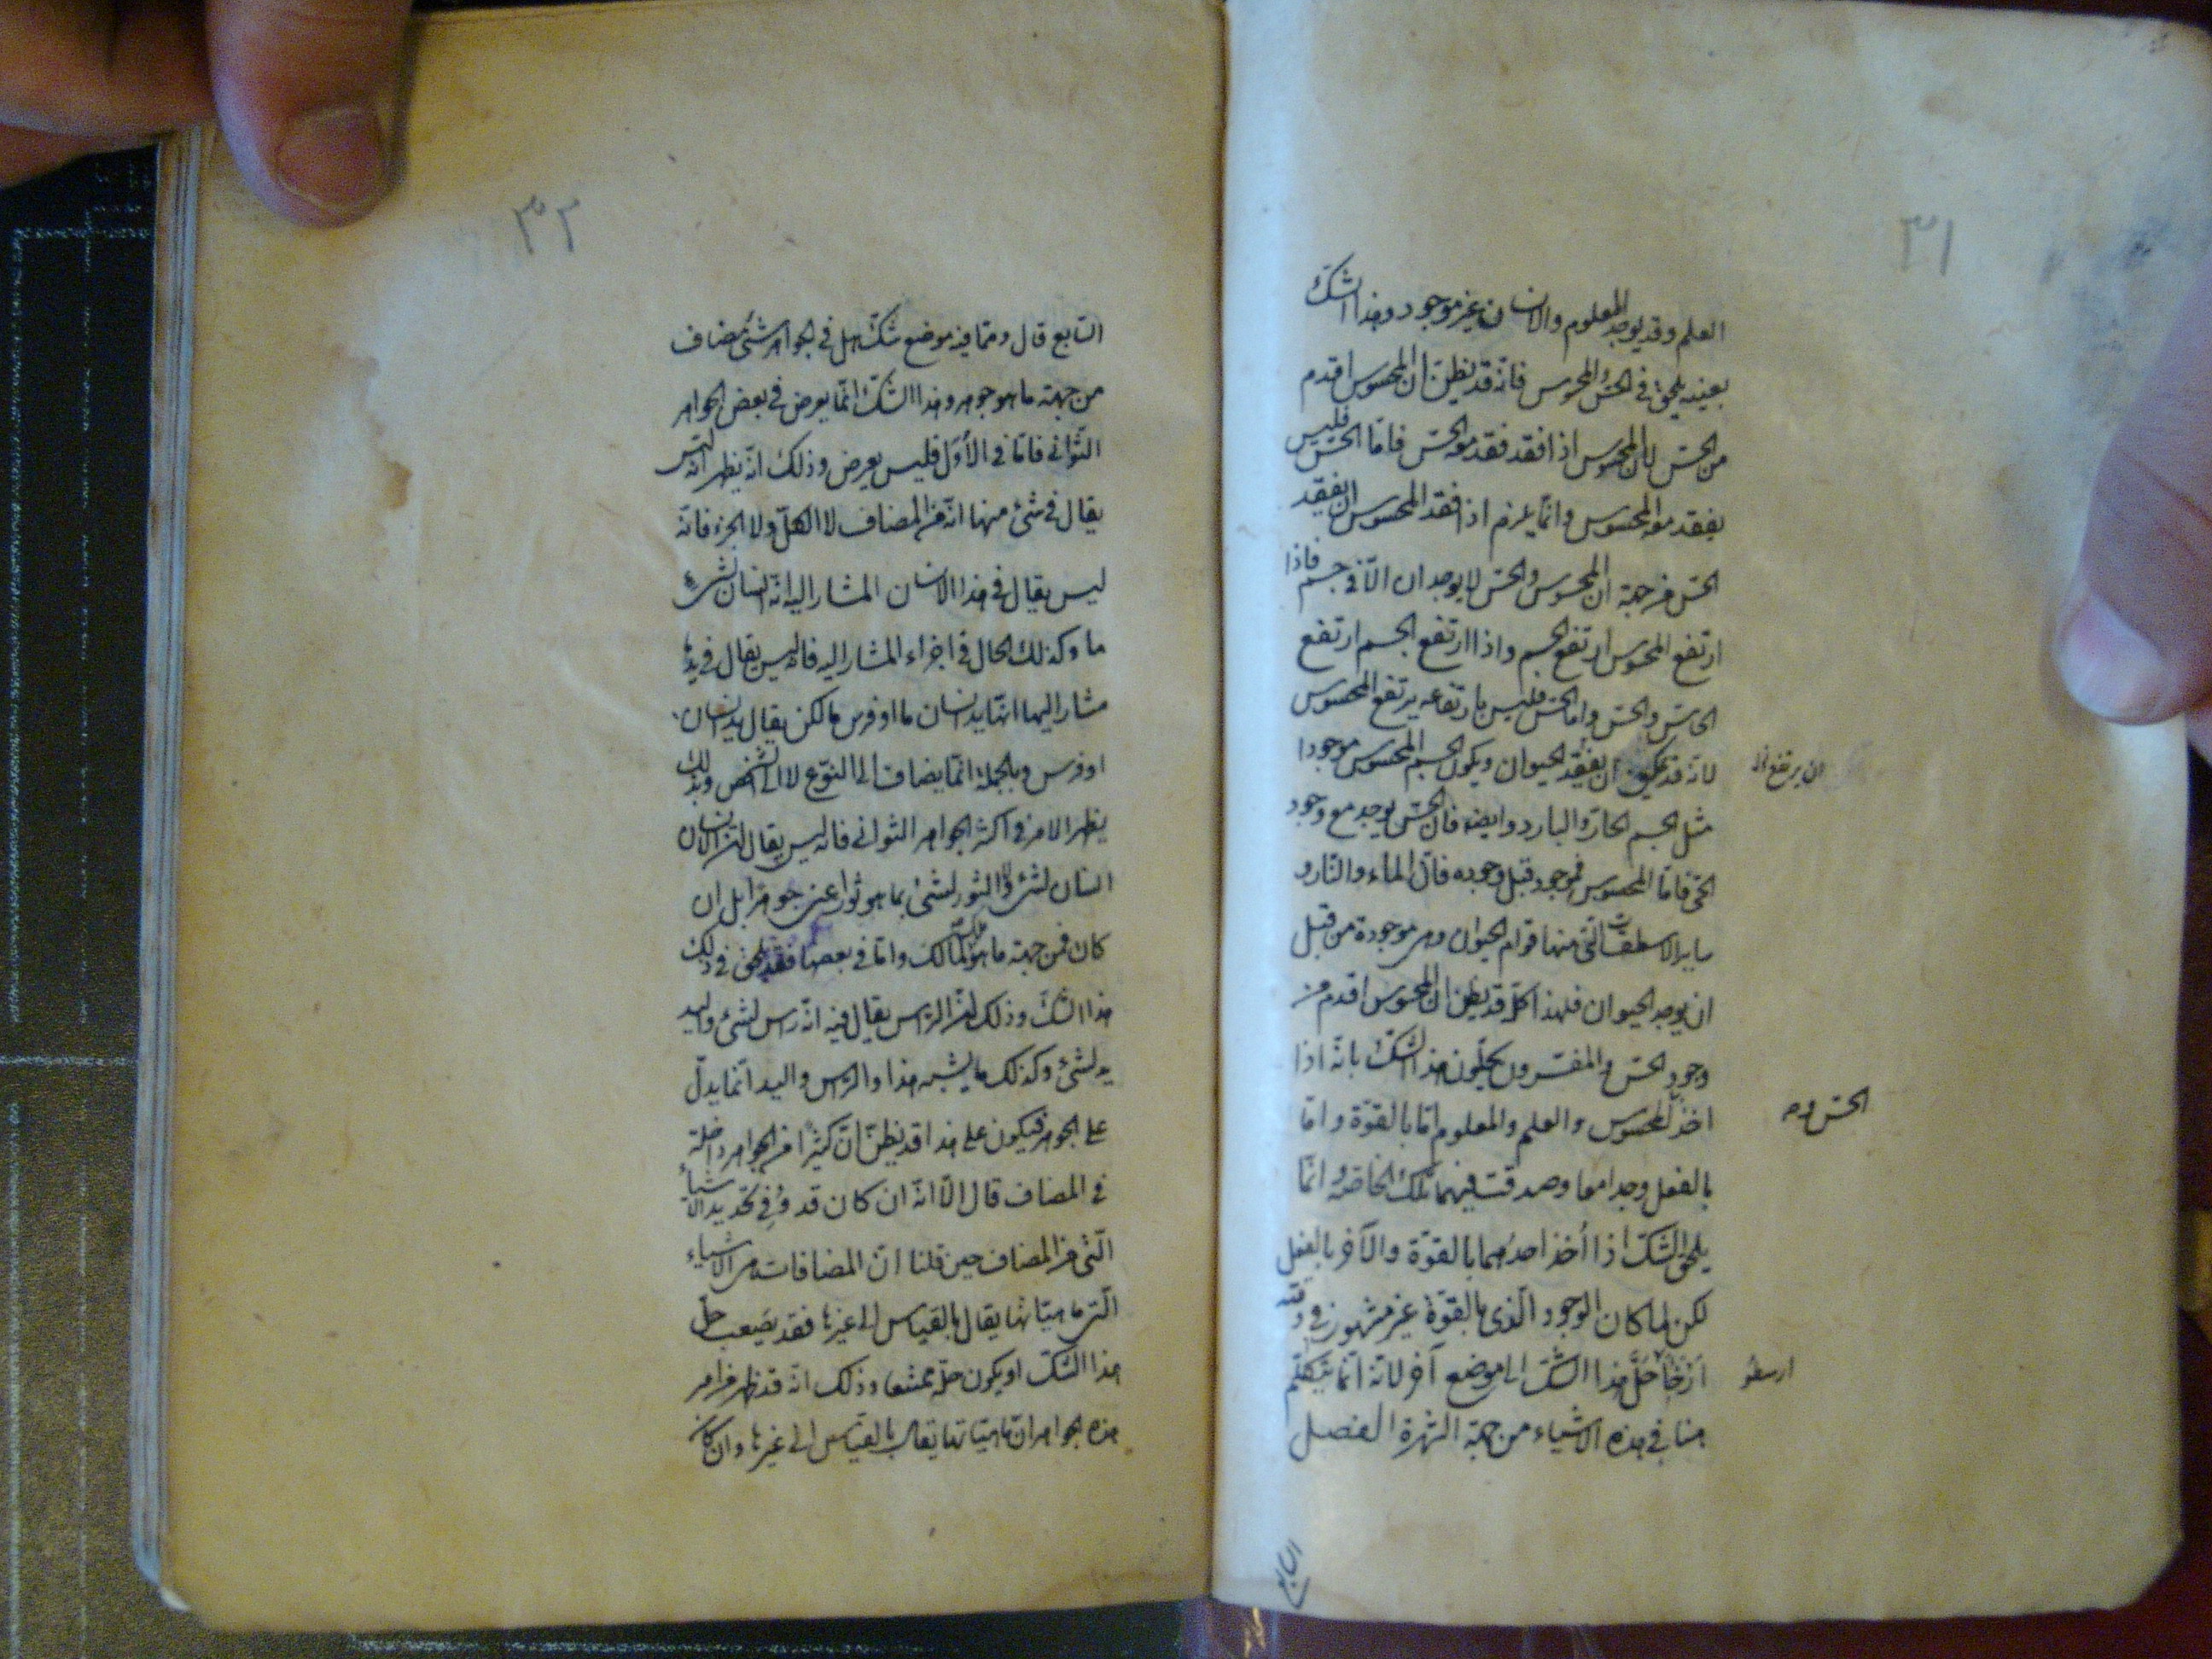 ٣١
العلم وقد يوجد المعلوم والانسان غير موجود وهذا الشكّ
بعينه يلحق في الحسّ والمحسوس فانّه قد يظنّ انّ المحسوس اقدم
من الحسّ لانّ المحسوس اذا فقد فقد معه الحسّ فامّا الحسّ فليس
يفقد معه المحسوس وانّما يلزم اذا فقد المحسوس ان يفقد
الحسّ من جهة انّ المحسوس والحسّ لا يوجدان الّا في جسم فاذا
ارتفع المحسوس ارتفع الجسم واذا ارتفع الجسم ارتفع
الحاسّ والحسّ وامّا الحسّ فليس بارتفاعه يرتفع المحسوس
لانّه قد يمكن ان يفقد الحيوان ويكون الجسم المحسوس موجودا
ان يرتفع
مثل الجسم الحارّ والبارد وايضا فانّ الحسّ يوجد مع وجود
الحيّ فامّا المحسوس فموجود قبل وجوده فانّ الماء والنّار و
ساير الاسطقسّات التي منها قوام الحيوان وهي موجودة من قبل
ان يوجد الحيوان فلهذا كلّه قد يظنّ انّ المحسوس اقدم من
وجود الحسّ والمفسّرون يحلّون هذا الشكّ بانّه اذا
اخذ المحسوس والعلم والمعلوم امّا بالقوّة وامّا
الحسّ و
بالفعل وجدا معا وصدقت فيهما تلك الخاصّة وانّما
يلحق الشكّ اذا أخذ احدهما بالقوّة والآخر بالفعل
لكن لمّا كان الوجود الّذي بالقوّة غير مشهور في وقته
أرْجَأ حَلَّ هذا الشكّ الى موضع آخر لانّه انّما يتكلّم
ارسطو
هنا في هذه الاشياء من جهة الشهرة الفصل
السابع
٣٢
السّابع قال وممّا فيه موضع شكّ هل في الجواهر شئ مضاف
من جهة ما هو جوهر وهذا الشكّ انّما يعرض في بعض الجواهر
الثّواني فامّا في الأوَل فليس يعرض وذلك انّه يظهر انّه ليس
يقال في شئ منها انّه من المضاف لا الكلّ ولا الجزء فانّه
ليس يقال في هذا الانسان المشار اليه انّه انسان لشئ
ما وكذلك الحال في اجزاء المشار اليه فانّه ليس يقال في يد ما
مشار اليها انّها يد انسان ما او فرس ما لكن يقال يد انسان
او فرس وبالجملة انّما يضاف الى النّوع لا الى الشخص وبذلك
يظهر الامر في اكثر الجواهر الثواني فانّه ليس يقال انّ الانسان
انسان لشئ ولا الثور لشئ بما هو ثور اعني جوهرًا بل ان
كان فمن جهة ما هو ملك لمالك وامّا في بعضها فقد يلحق في ذلك
هذا الشكّ وذلك انّ الرّاس يقال فيه انّه راس لشئ واليد
يد لشئ وكذلك ما يشبه هذا والرّاس واليد انّما يدلّ
على الجوهر فيكون على هذا قد يظنّ انّ كثيرًا من الجواهر داخلة
في المضاف قال الّا انّه ان كان قد وُفي تحديد الاشياء
الّتي من المضاف حين قلنا انّ المضافات هي الاشياء
الّتي ماهيّاتها يقال بالقياس الى غيرها فقد يَصعب حلّ
هذا الشكّ او يكون حلّه ممتنعا وذلك انّه قد ظهر من امر
هذه الجواهر انّ ماهيّاتها يقال بالقياس الى غيرها وان كان